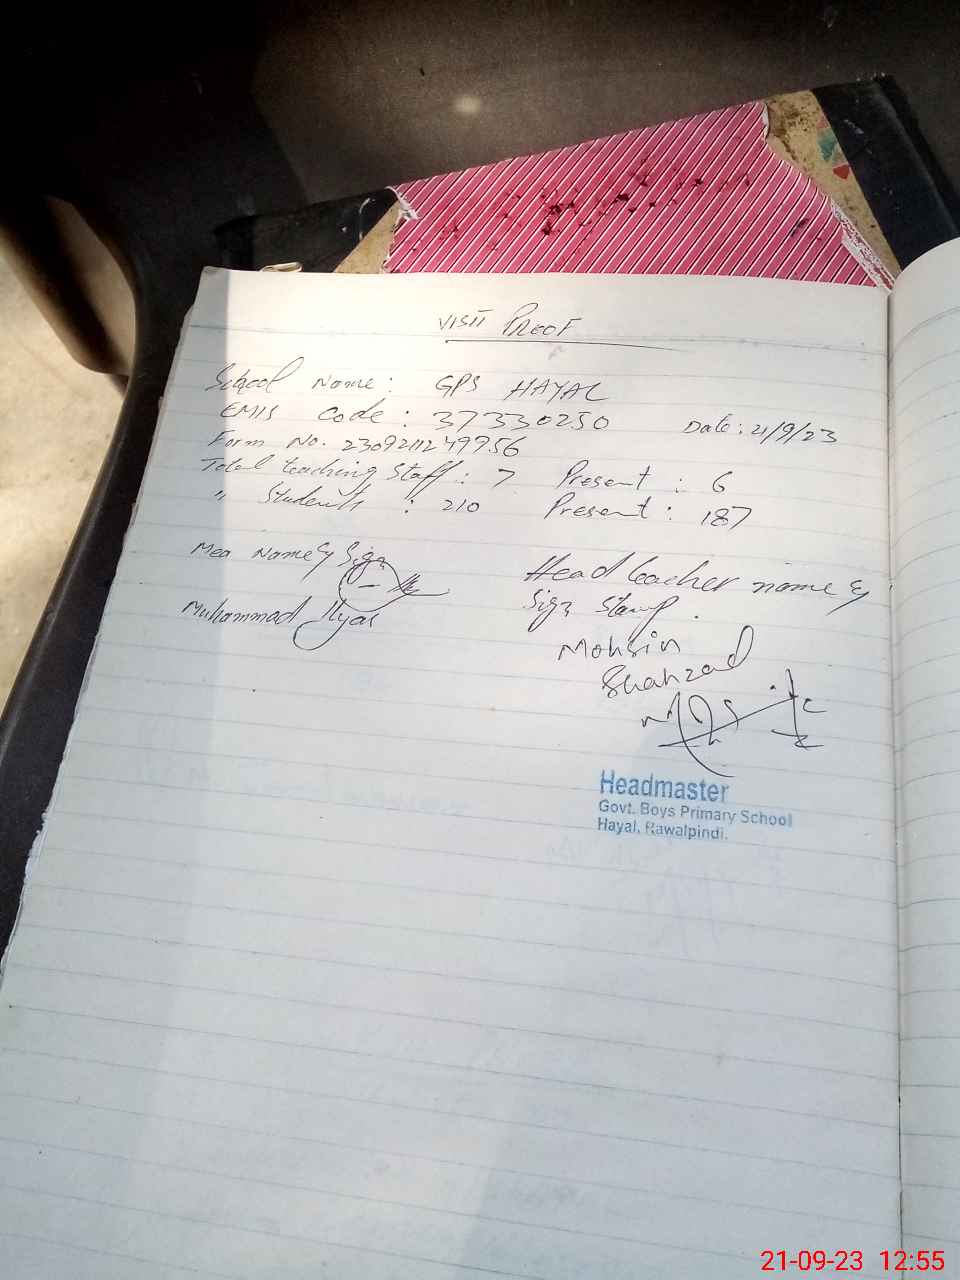 VISIT PROOF
School Name: GPS HAYAL
EMIS Code: 37330250 Date: 21/9/23
Form No. 2309211249956
Total teaching Staff: 7 Present: 6
" Students: 210 Present: 187
Mea Name & Sign
Muhammad Ilyas
Head teacher name &
Sign Stamp.
Mohsin
Shahzad
Headmaster
Govt. Boys Primary School
Hayal, Rawalpindi.
21-09-23 12:55